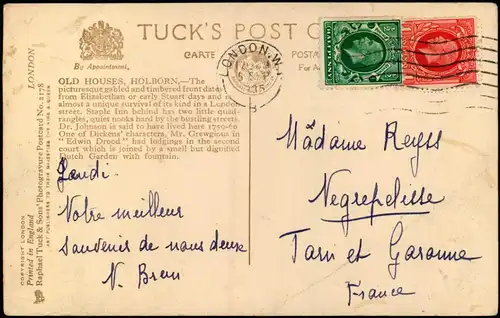 TUCK'S POST C
CARTE
POSTA
By Appointment.
For A
LONDON. W.
5
35
HALFPENNY
OLD HOUSES, HOLBORN.—The
picturesque gabled and timbered front dates
from Elizabethan or early Stuart days and is
almost a unique survival of its kind in a London
street. Staple Inn behind has two little quad-
rangles, quiet nooks hard by the bustling streets.
Dr. Johnson is said to have lived here 1759-60
One of Dickens' characters, Mr. Grewgious in
"Edwin Drood" had lodgings in the second
court which is joined by a small but dignified
Dutch Garden with fountain.
LONDON
Raphael Tuck & Sons' Photogravure Postcard No. 2178
ART PUBLISHERS TO THEIR MAJESTIES THE KING
Printed in England
COPYRIGHT LONDON
Jeudi.
Notre meilleur
souvenir de nous deux
N. Brun
Madame Reyss
Negrepelisse
Tarn et Garonne
France